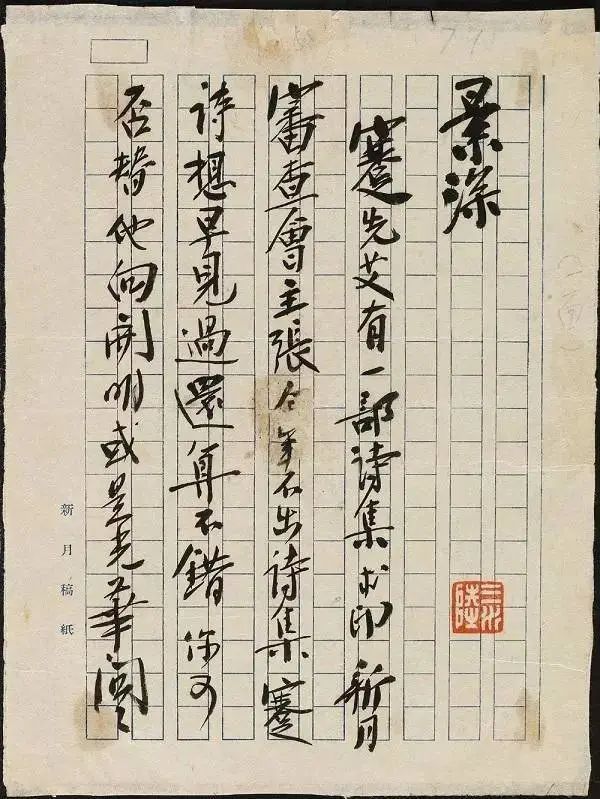 景深
蹇先艾有一部詩集求印新月
審查會主張今年不出詩集蹇
詩想早見過還算不錯你可
否替他向開明或是光華問
新月稿紙